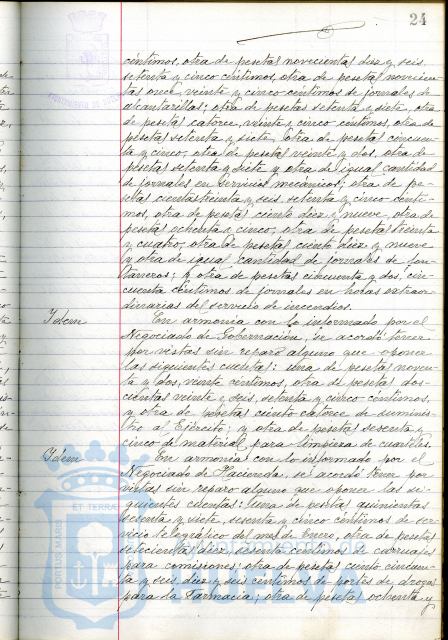 24
céntimos, otra de pesetas novecientas diez y seis
setenta y cinco céntimos, otra de pesetas novecien-
tas once, veinte y cinco céntimos de jornales de
alcantarillas; otra de pesetas setenta y siete, otra
de pesetas catorce, veinte y cinco céntimos, otra de
pesetas setenta y siete, otra de pesetas cincuen-
ta y cinco, otra de pesetas veinte y dos, otra de
pesetas setenta y siete y otra de igual cantidad
de jornales en servicios mecánicos; otra de pe-
setas ciento treinta y seis, setenta y cinco cénti-
mos, otra de pesetas ciento diez y nueve, otra de
pesetas ochenta y cinco, otra de pesetas treinta
y cuatro, otra de pesetas ciento diez y nueve
y otra de igual cantidad de jornales de fon-
taneros; y otra de pesetas cincuenta y dos, cin-
cuenta céntimos de jornales en horas extraor-
dinarias del servicio de incendios.
Idem En armonía con lo informado por el
Negociado de Gobernación, se acordó tener
por vistas sin reparo alguno que oponer
las siguientes cuentas: una de pesetas noven-
ta y dos, veinte céntimos, otra de pesetas dos-
cientas veinte y seis, setenta y cinco céntimos,
y otra de pesetas ciento catorce de suminis-
tro al Ejército; y otra de pesetas sesenta y
cinco de material para limpieza de cuarteles.
Idem En armonía con lo informado por el
Negociado de Hacienda, se acordó tener por
vistas sin reparo alguno que oponer las si-
guientes cuentas: una de pesetas quinientas
setenta y siete, sesenta y cinco céntimos de ser-
vicio telegráfico del mes de Enero, otra de pesetas
setecientas diez, sesenta céntimos de carruajes
para comisiones; otra de pesetas ciento cincuen-
ta y seis, diez y seis céntimos de portes de drogas
para la Farmacia; otra de pesetas ochenta y
ET TERRÆ
PORTUS